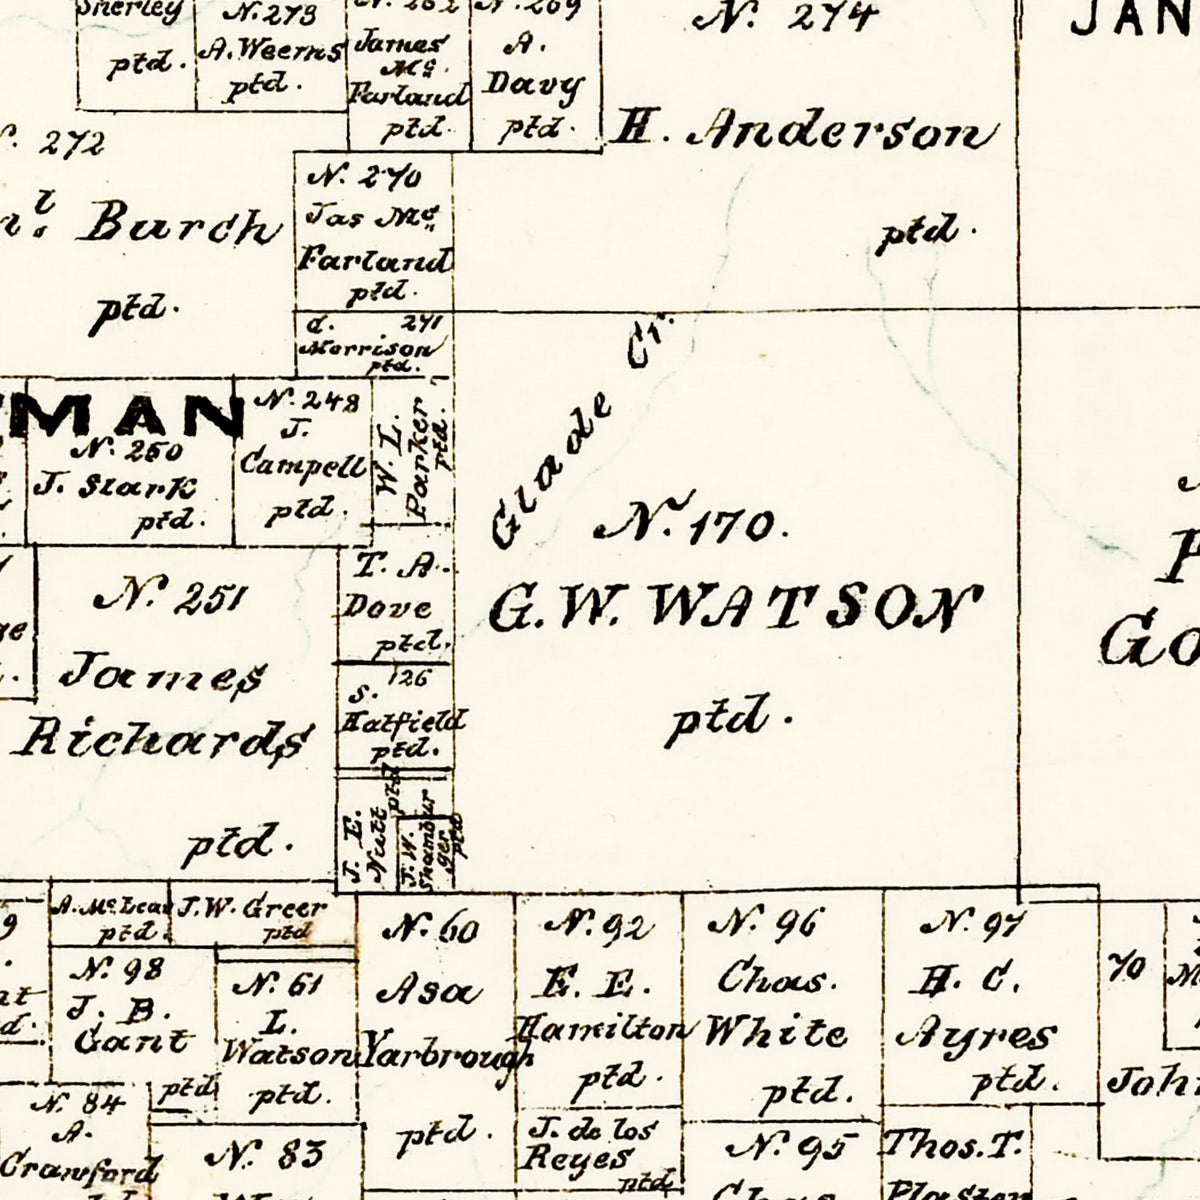 Sherley
ptd.
N. 273
A. Weems
ptd.
N. 262
James
Mc.
Farland
ptd.
N. 269
A.
Davy
ptd.
N. 274
H. Anderson
ptd.
JAN
272
Burch
ptd.
N. 270
Jas Mc.
Farland
ptd.
d. 271
Morrison
ptd.
MAN
N. 250
J. Stark
ptd.
N. 248
J.
Campell
ptd.
W. L.
Parker
ptd.
Glade Cr.
N. 170.
G. W. WATSON
ptd.
Go
N. 251
James
Richards
ptd.
T. A.
Dove
ptd.
126
S.
Hatfield
ptd.
J. E.
Nutt
ptd
J. W.
Shambur
ger
ptd
A. McLean
ptd.
J. W. Greer
ptd
N. 98
J. B.
Gant
ptd
N. 61
L.
Watson
ptd.
N. 60
Asa
Yarbrough
ptd.
N. 92
E. E.
Hamilton
ptd.
N. 96
Chas.
White
ptd.
N. 97
H. C.
Ayres
ptd.
70
John
N. 84
A.
Crawford
N. 83
J. de los
Reyes
ptd.
N. 95
Chas.
Thos. T.
Plaster